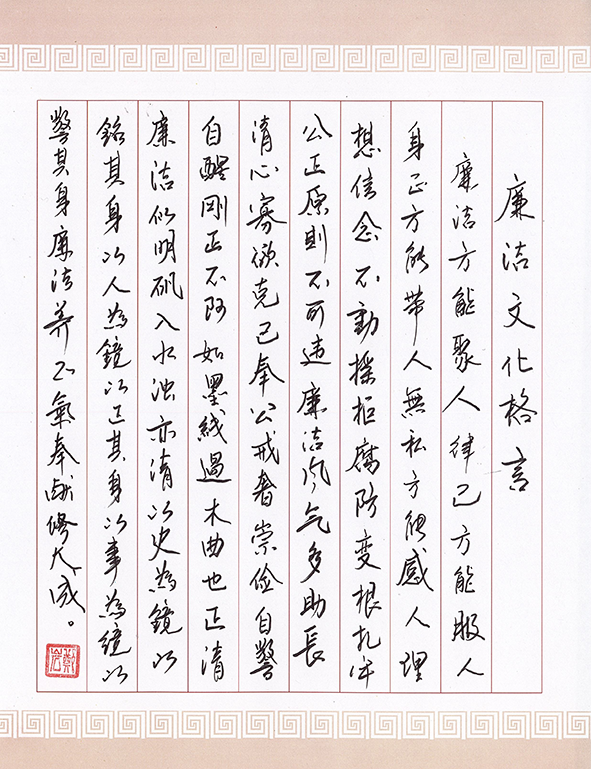 廉洁文化格言
廉洁方能聚人律己方能服人
身正方能带人無私方能感人理
想信念不動摇拒腐防变根扎牢
公正原則不可违廉洁风气多助長
清心寡欲克己奉公戒奢崇俭自警
自醒刚正不阿如墨线過木曲也正清
廉洁似明矾入水浊亦清以史為鏡以
銘其身以人為鏡以正其身以事為鏡以
警其身廉洁养正氣奉献修大成。